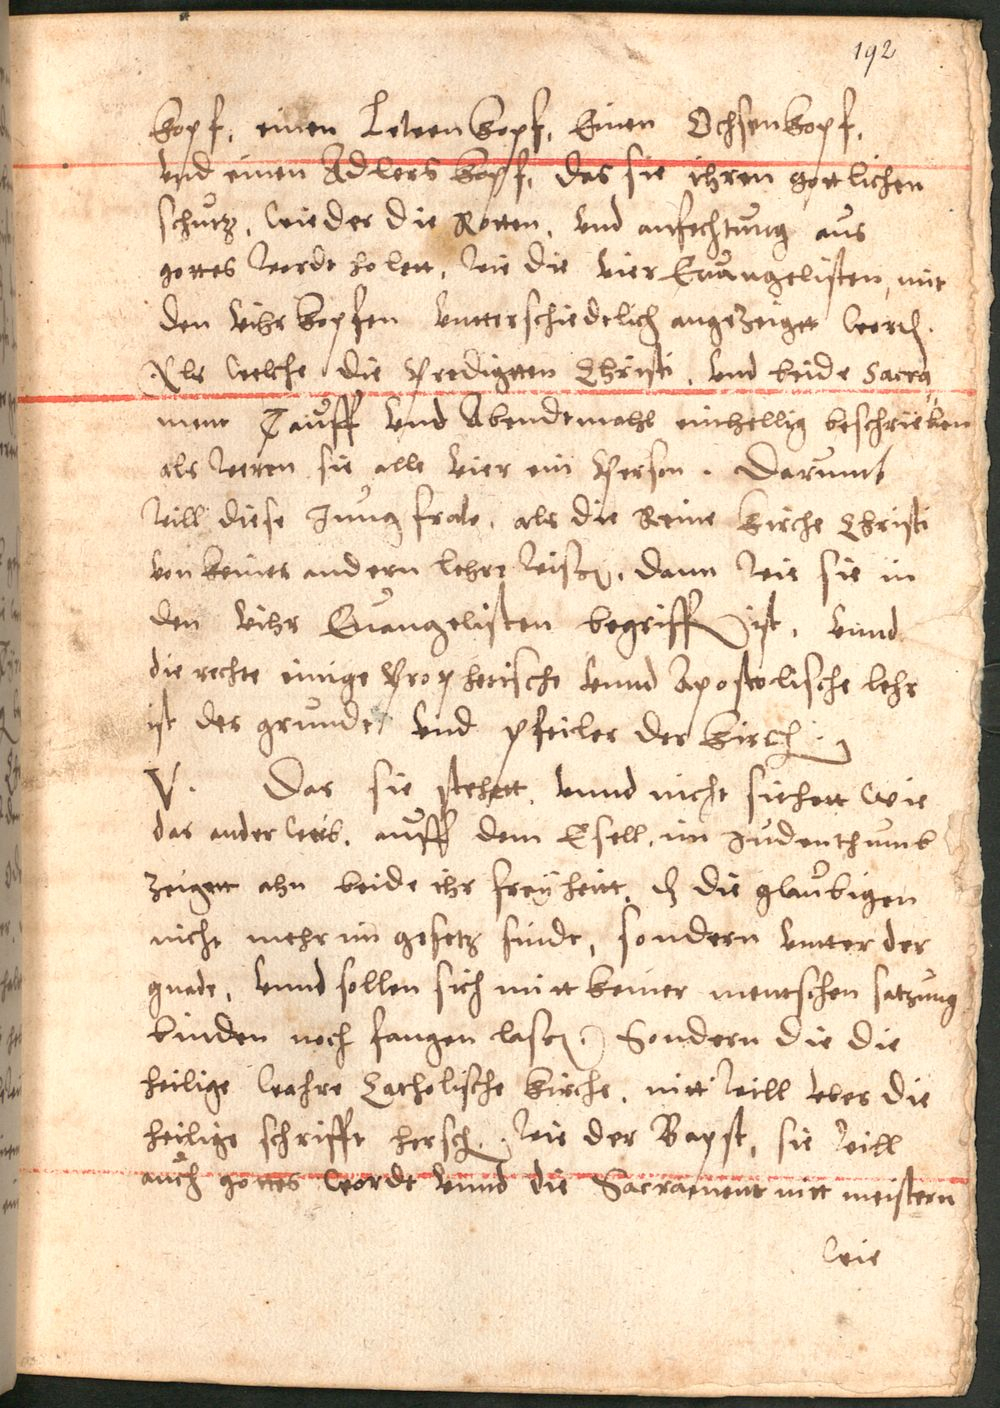 192
kopf, einen Lewen kopf, Einen Ochsenkopf,
vnd einen Adlers kopf, das sie ihren gottlichen
schutz, wieder die Rotten, vnd anfechtung aus
gottes wordt holett, wie die vier Euangelisten, mit
den vihr kopfen vntterschiedelich angezeigtt word
Als welche die Predigtten Christi, vnd beide Sacra
ment Tauff vnd Abendtmahl einhellig beschrieben
als weren sie alle vier ein Person. Darumb
will diese Jungfraw, als die Reine Kirche Christi
von keiner andern lehre wissen, dann wie sie in
den vihr Euangelisten begriffen ist, vnnd
die rechte einige Prophetische vnnd Apostolische lehr
ist der grundt vnd pfeiler der kirch.
V. Das sie stehett, vnnd nicht sitzett wie
das ander weib, auff dem Esell, im Judenthumb
zeigett ahn beide ihr freyheitt, d die glaubigen
nicht mehr im gesetz sindt, sondern vntter der
gnade, vnnd sollen sich mitt keiner mentschen satzung
binden noch fangen lassen. Sondern die die
heilige wahre Catholische kirche, nitt will vber die
heilige schrifft hersch. wie der Bapst, sie will
auch gottes wordt vnnd die Sacrament nitt meistern
wie